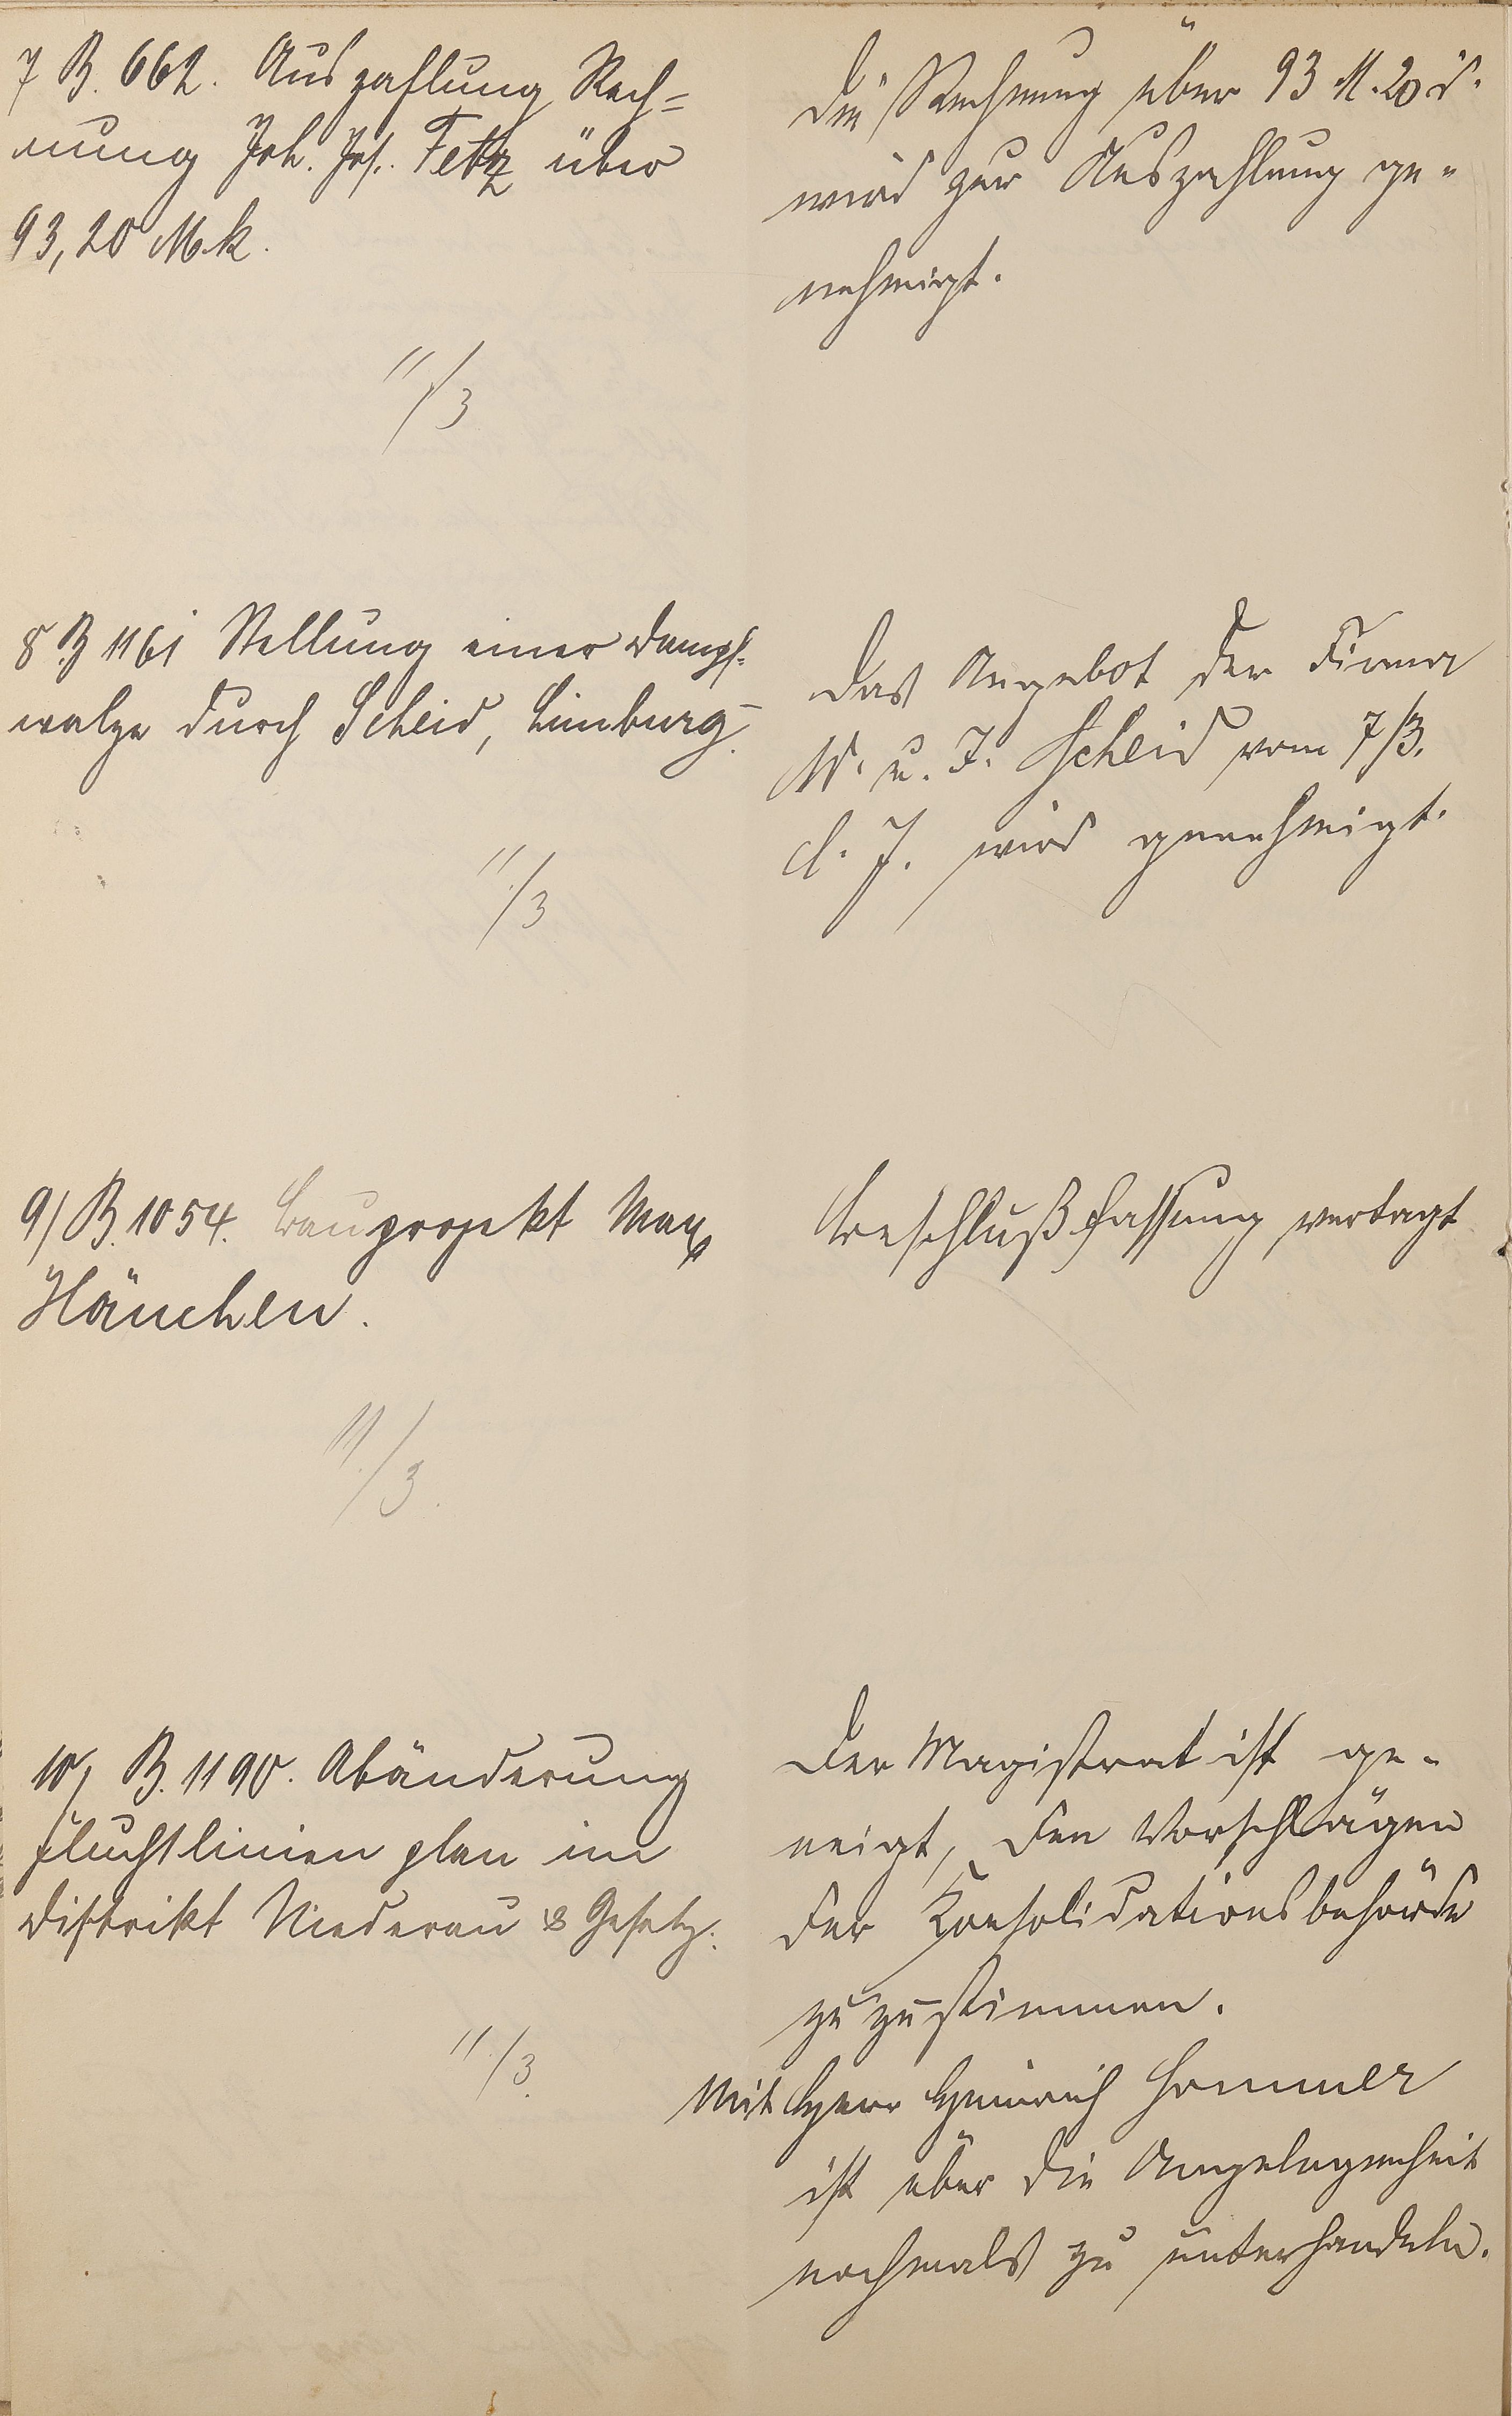 7 B. 662. Auszahlung Rech=
nung Joh. Jos. Fetz über
93,20 Mk.
11/3
Die Rechnung über 93 M. 20 d.
wird zur Auszahlung ge-
nehmigt.
8 B 1161 Stellung einer Dampf-
walze durch Scheid, Limburg.
11./3
Das Angebot der Firma
W. u. J. Scheid vom 7/3.
d. J. wird genehmigt.
9/ B. 1054. Bauprojekt Max
Hänchen.
11./3.
Beschlußfassung vertagt
10/ B. 1190. Abänderung
Fluchtlinienplan im
Distrikt Niederau & Gesetz.
11./3.
Der Magistrat ist ge-
neigt, den Vorschlägen
der Konsolidationsbehörde
zuzustimmen.
Mit Herr Heinrich Hommer
ist über die Angelegenheit
nochmals zu unterhandeln.